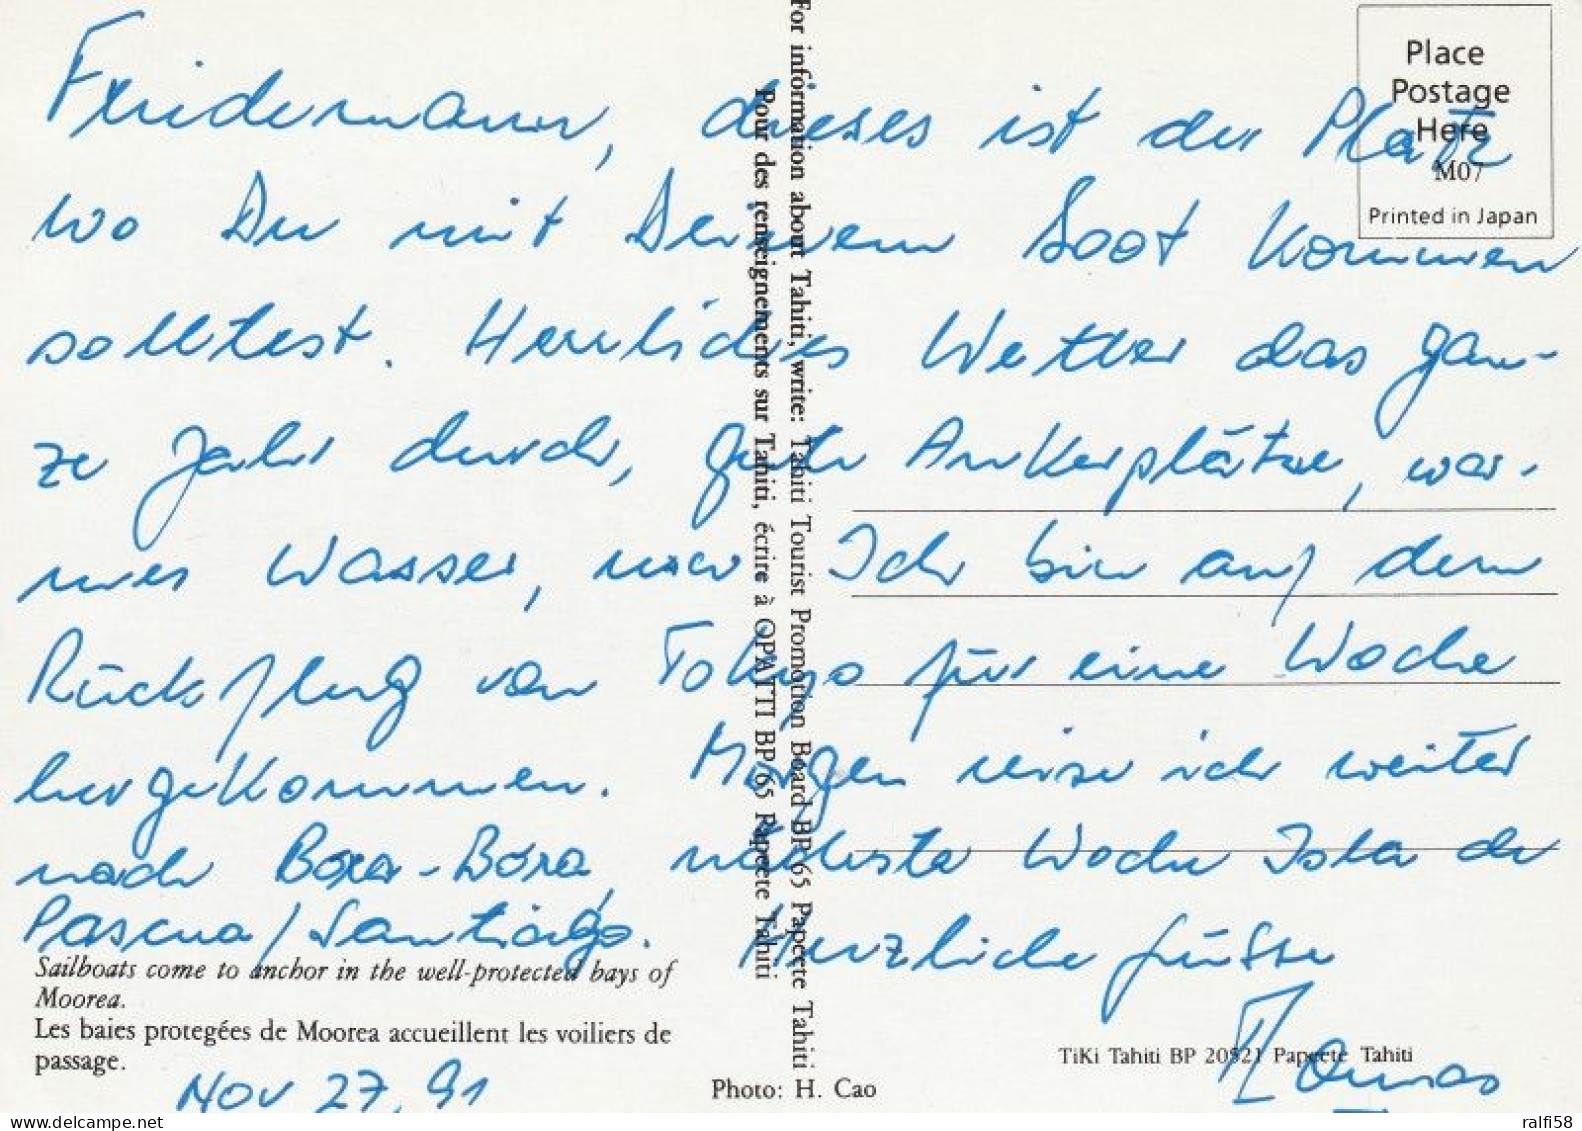 Friedemann, dieses ist der Platz
wo Du mit Deinem Boot kommen
solltest. Herrliches Wetter das gan-
ze Jahr durch, gute Ankerplätze, war-
mes Wasser, usw Ich bin auf dem
Rückflug von Tokyo für eine Woche
hergekommen. Morgen reise ich weiter
nach Bora-Bora, nächste Woche Isla de
Pascua/Santiago. Herzliche Grüsse
Thomas
Nov 27, 91
Place
Postage
Here
M07
Printed in Japan
For information about Tahiti, write: Tahiti Tourist Promotion Board BP 65 Papeete Tahiti
Pour des renseignements sur Tahiti, écrire à OPATTI BP 65 Papeete Tahiti
Sailboats come to anchor in the well-protected bays of
Moorea.
Les baies protegées de Moorea accueillent les voiliers de
passage.
Photo: H. Cao
TiKi Tahiti BP 20521 Papeete Tahiti
www.delcampe.net
ralfi58